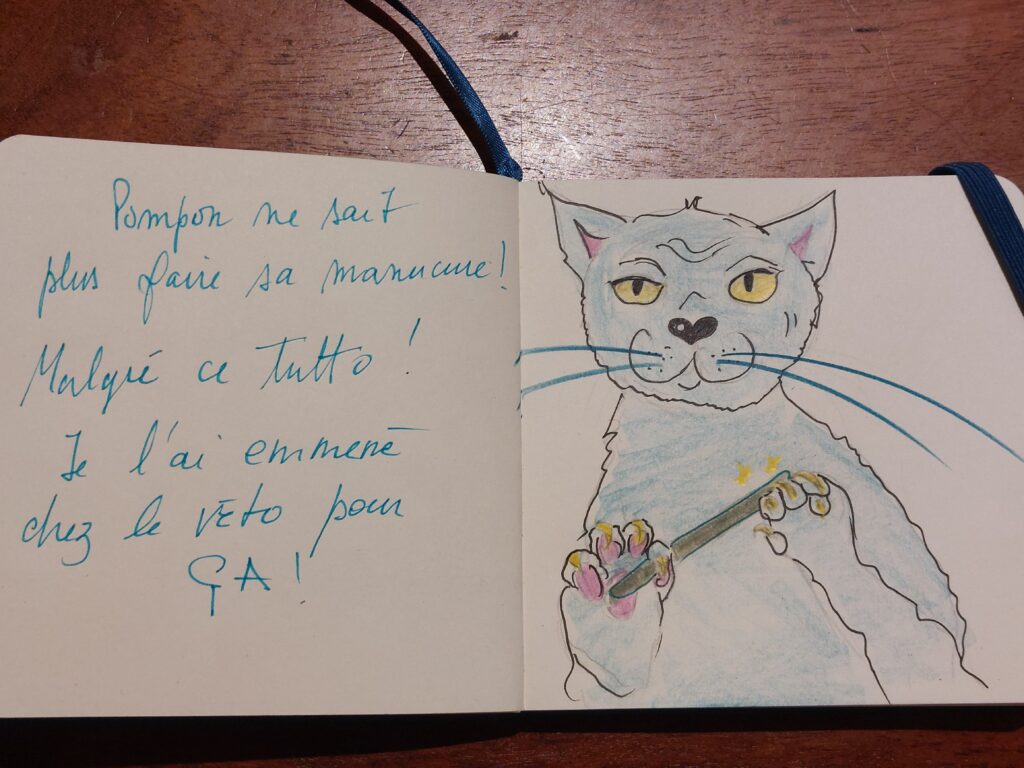 Pompon ne sait
plus faire sa manucure!
Malgré ce tutto!
Je l'ai emmené
chez le véto pour
ÇA!